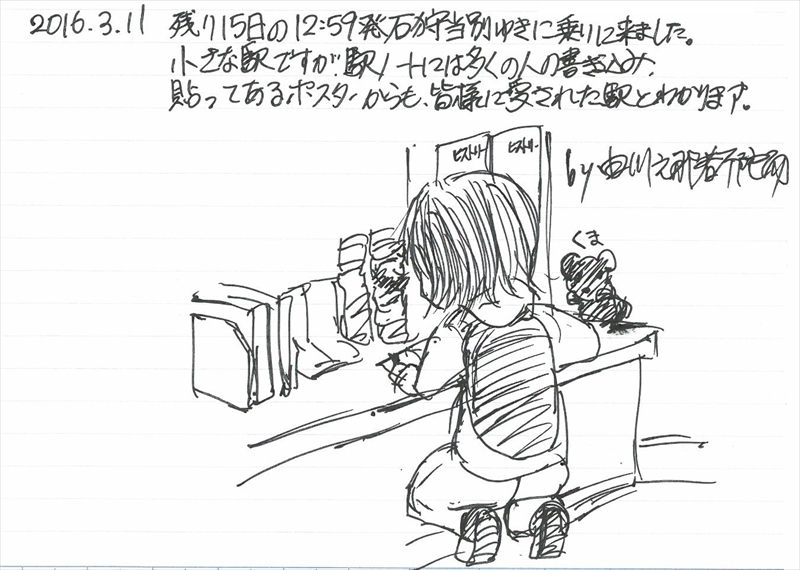 2016.3.11 残り15日の12:59発石狩当別ゆきに乗りに来ました。
小さな駅ですが、駅ノートには多くの人の書き込み、
貼ってあるポスターからも、皆様に愛された駅とわかります。
ヒストリー ヒストリー
by
くま